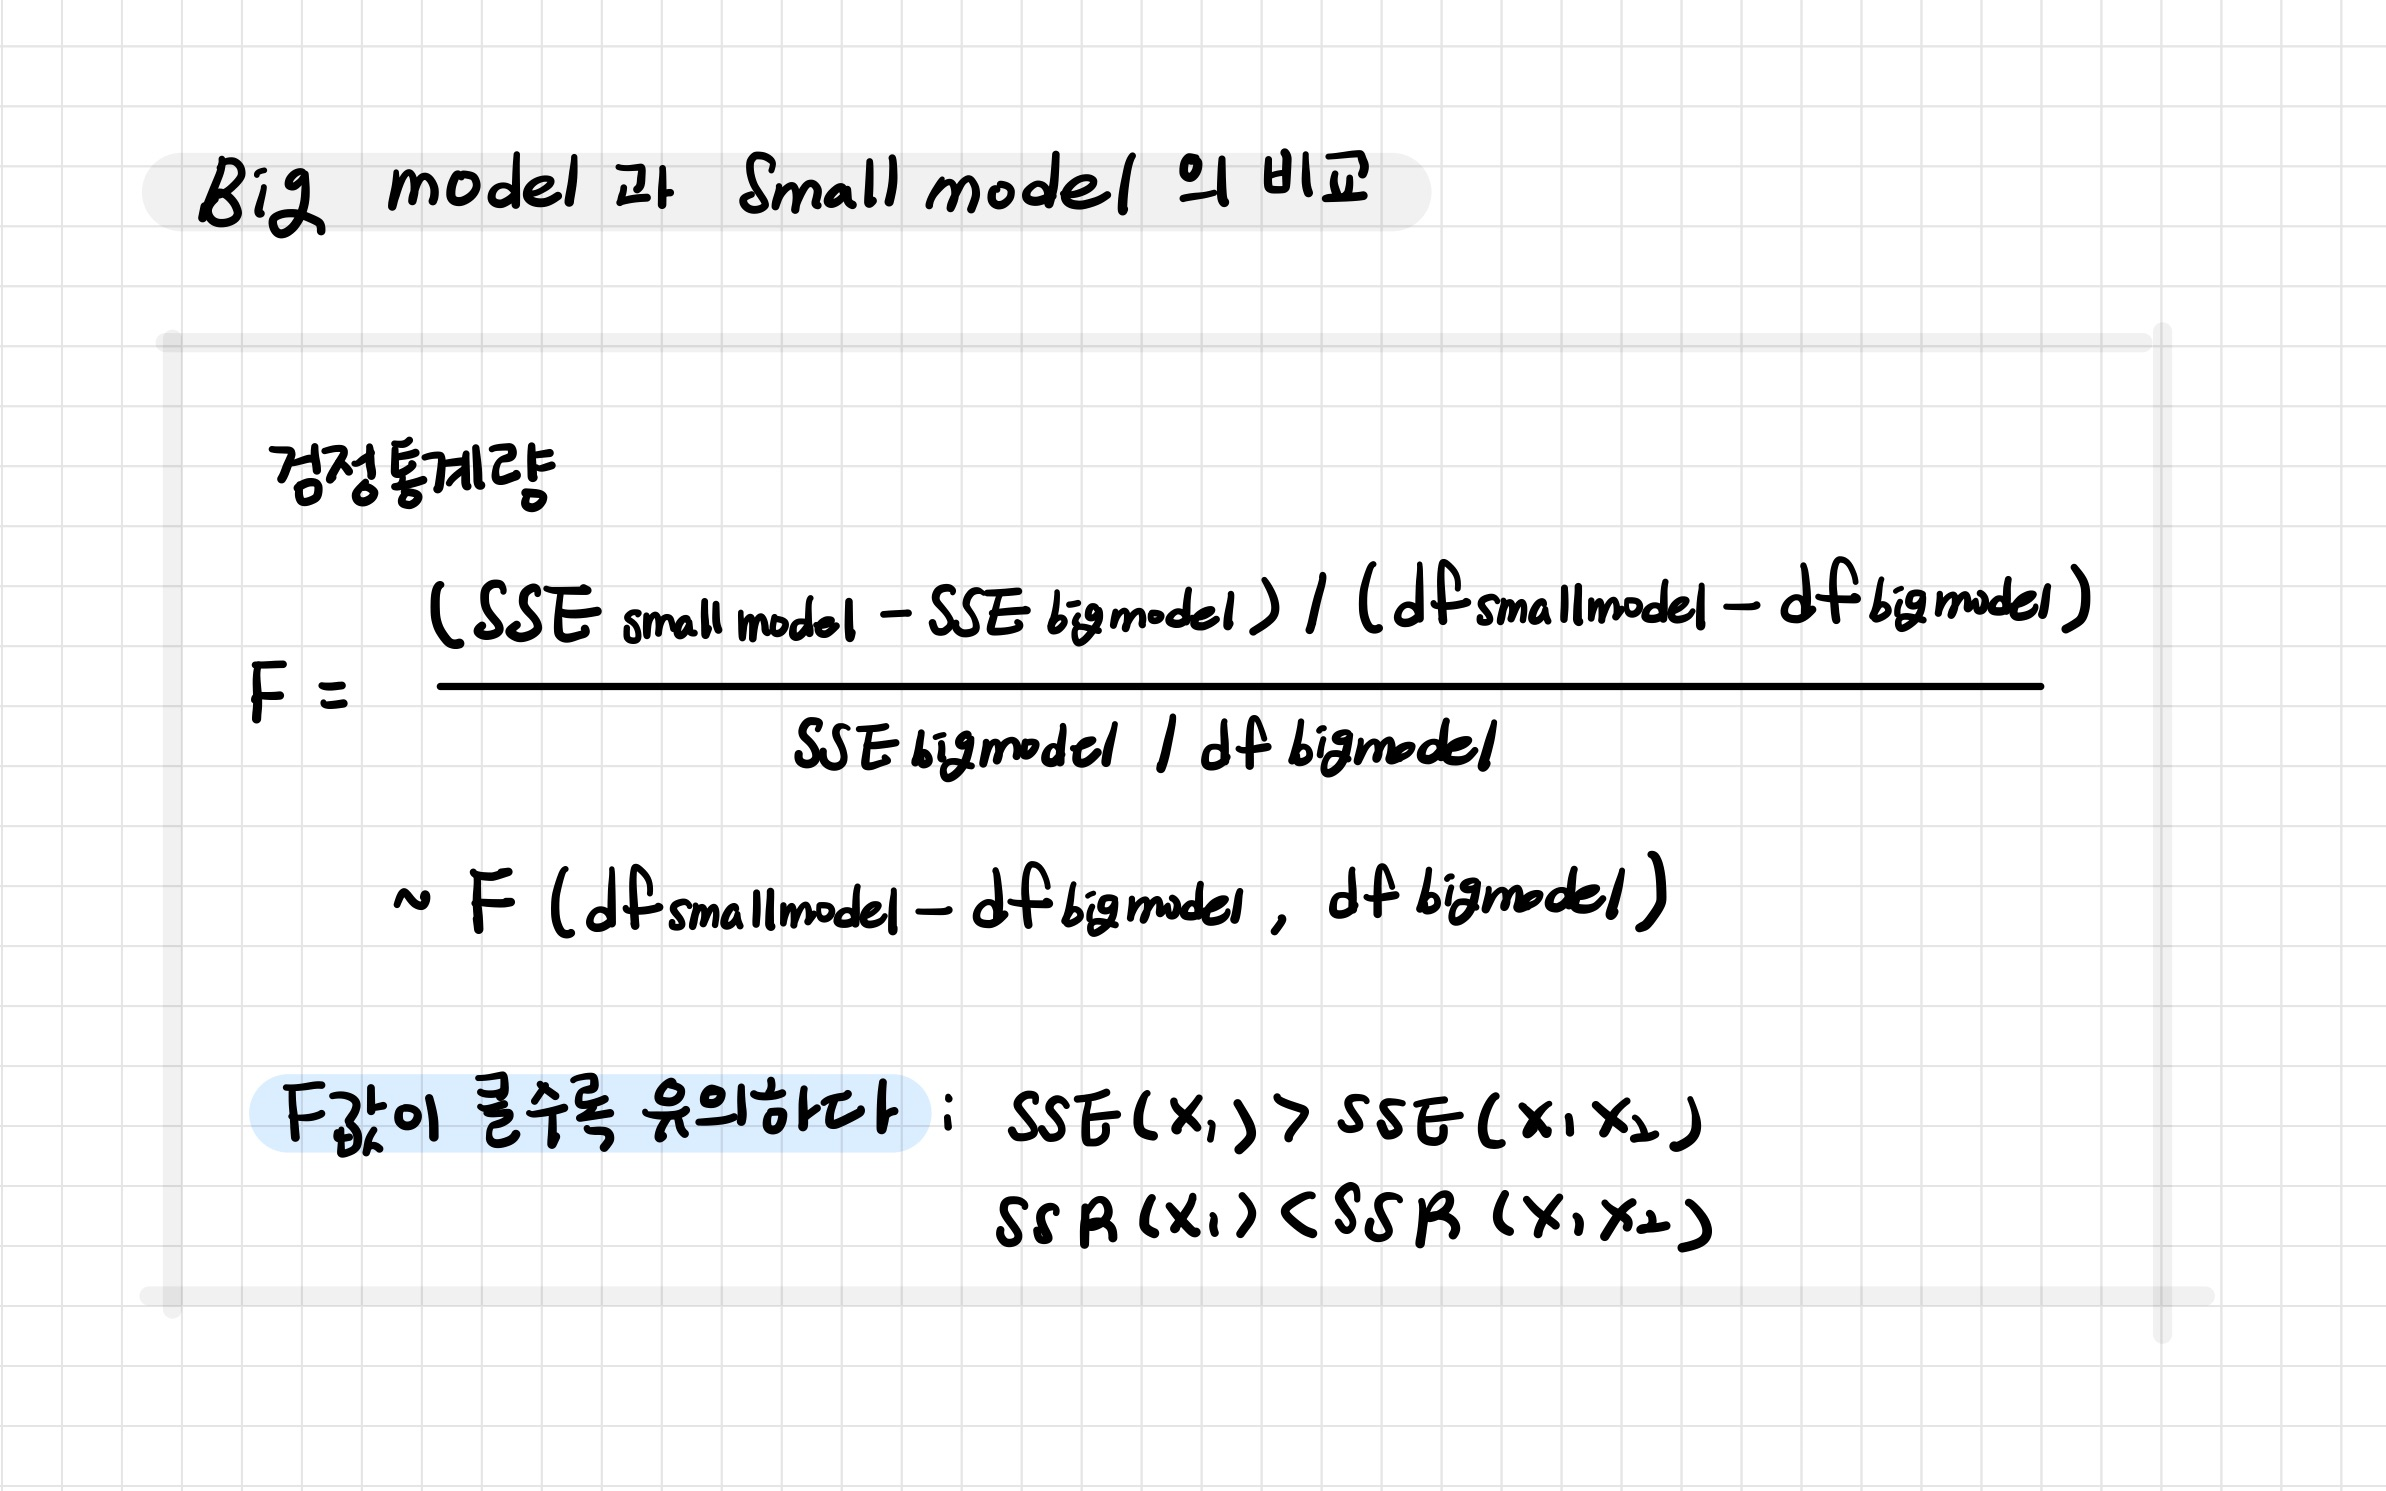 Big model 과 Small model 의 비교
검정통계량
(SSE small model - SSE big model) / (df small model - df big model)
F =
SSE big model / df big model
~ F (df small model - df big model , df big model)
F값이 클수록 유의하다 : SSE(X₁) > SSE(X₁X₂)
SSR(X₁) < SSR(X₁X₂)